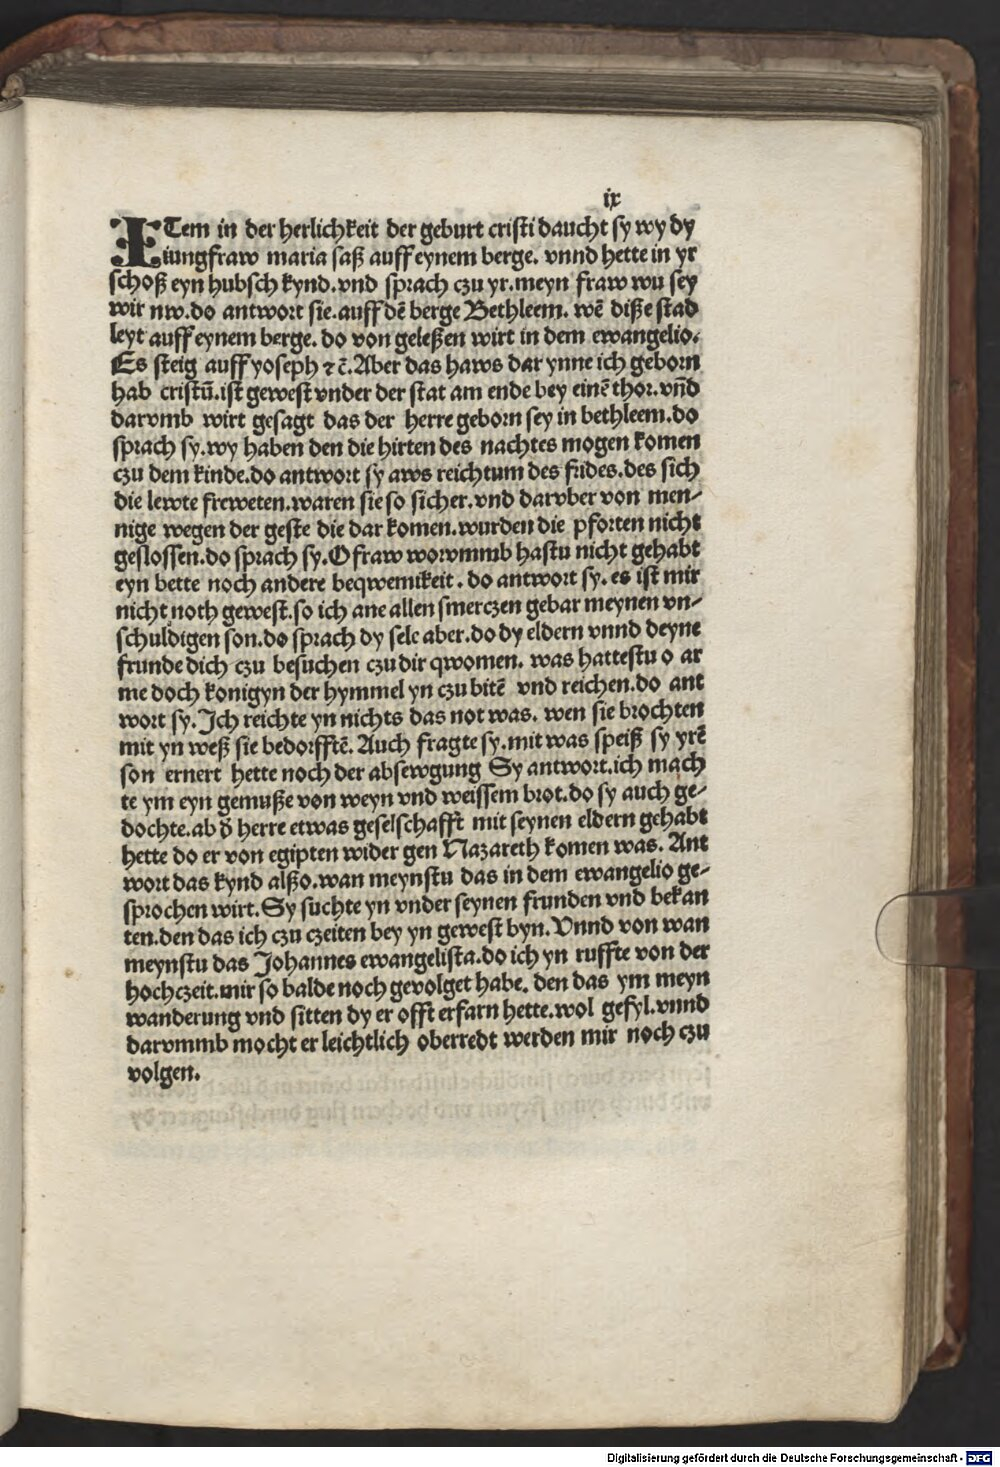 ix
ITem in der herlichkeit der geburt cristi daucht sy wy dy
iungfraw maria saß auff eynem berge. vnnd hette in yr
schoß eyn hubsch kynd.vnd sprach czu yr.meyn fraw wu sey
wir nw.do antwort sie.auff dē berge Bethleem. wē diße stad
leyt auff eynem berge. do von geleßen wirt in dem ewangelio.
Es steig auff yoseph ⁊ c̄. Aber das haws dar ynne ich geborn
hab cristū.ist gewest vnder der stat am ende bey einē thor.vn̄d
darvmb wirt gesagt das der herre geborn sey in bethleem.do
sprach sy.wy haben den die hirten des nachtes mogen komen
czu dem kinde.do antwort sy aws reichtum des frides.des sich
die lewte freweten.waren sie so sicher.vnd darvber von men-
nige wegen der geste die dar komen.wurden die pforten nicht
geslossen.do sprach sy.O fraw worvmmb hastu nicht gehabt
eyn bette noch andere beqwemikeit. do antwort sy. es ist mir
nicht noth gewest.so ich ane allen smerczen gebar meynen vn-
schuldigen son.do sprach dy sele aber.do dy eldern vnnd deyne
frunde dich czu besuchen czu dir qwomen. was hattestu o ar
me doch konigyn der hymmel yn czu bitē vnd reichen.do ant
wort sy. Ich reichte yn nichts das not was. wen sie brochten
mit yn weß sie bedorfftē. Auch fragte sy.mit was speiß sy yrē
son ernert hette noch der absewgung Sy antwort.ich mach
te ym eyn gemuße von weyn vnd weissem brot.do sy auch ge-
dochte.ab d̄ herre etwas geselschafft mit seynen eldern gehabt
hette do er von egipten wider gen Nazareth komen was. Ant
wort das kynd alßo.wan meynstu das in dem ewangelio ge-
sprochen wirt. Sy suchte yn vnder seynen frunden vnd bekan
ten.den das ich czu czeiten bey yn gewest byn. Vnnd von wan
meynstu das Johannes ewangelista.do ich yn ruffte von der
hochczeit.mir so balde noch gevolget habe. den das ym meyn
wanderung vnd sitten dy er offt erfarn hette.wol gefyl.vnnd
darvmmb mocht er leichtlich oberredt werden mir noch czu
volgen.
Digitalisierung gefördert durch die Deutsche Forschungsgemeinschaft - DFG